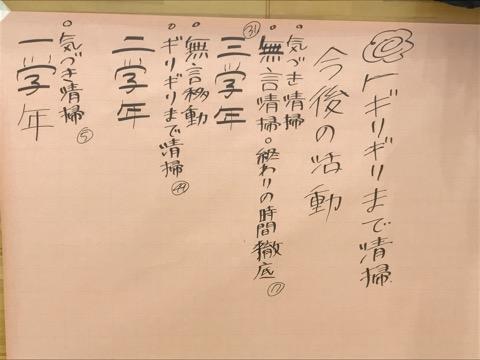 「ギリギリまで清掃
今後の活動
・気づき清掃
㉛
・無言清掃・終わりの時間徹底
三学年
・無言移動
・ギリギリまで清掃
二学年
・気づき清掃⑤
一学年